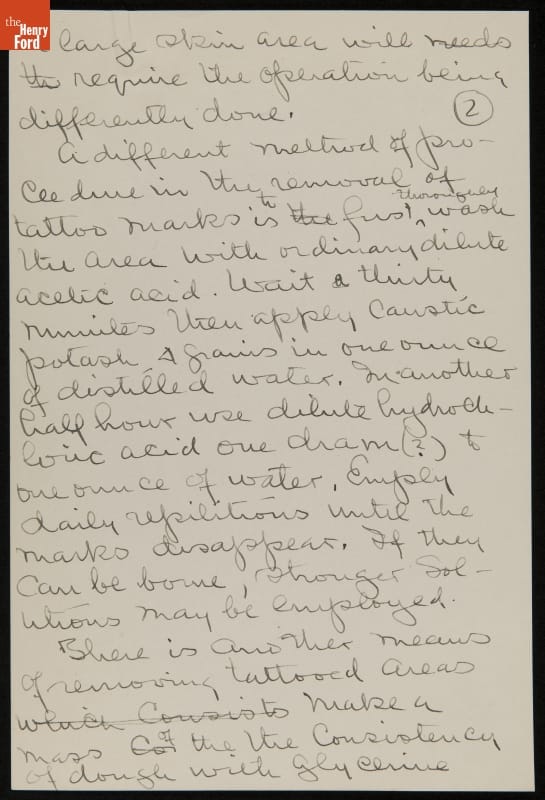 the
Henry
Ford
large skin area will needs
th require the operation being
differently done.
2
A different method of pro-
cedure in the removal of
thoroughly
tattoo marks is to the first wash
the area with ordinary dilute
acetic acid. Wait a thirty
minutes then apply caustic
potash 4 grains in one ounce
of distilled water. In another
half hour use dilute hydroch-
loric acid one dram (?) to
one ounce of water. Employ
daily repititions until the
marks disappear. If they
can be borne, stronger sol-
utions may be employed.
There is another means
of removing tattooed areas
which consists make a
mass of the the consistency
of dough with glycerine